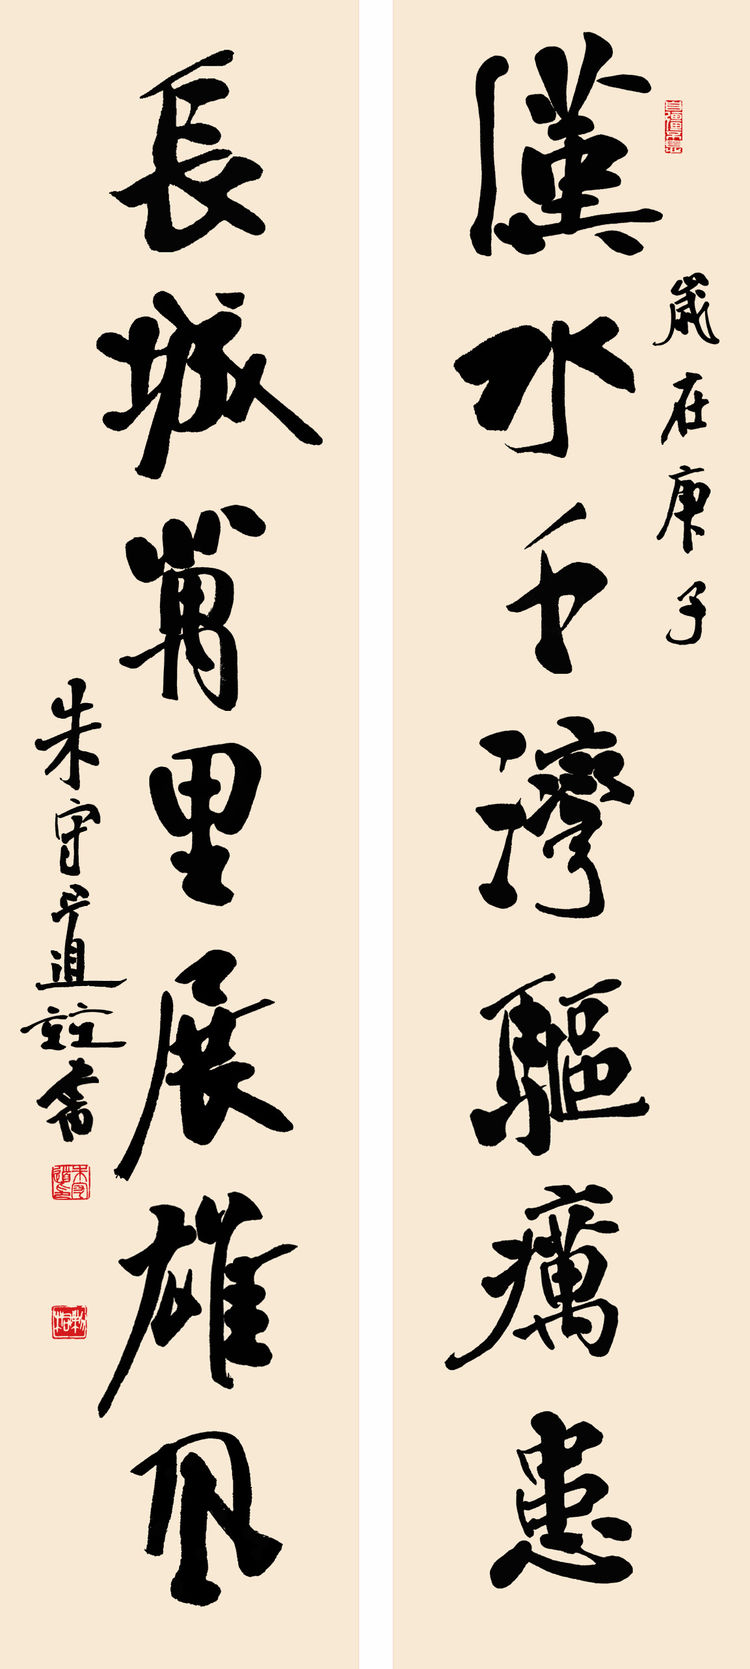 歲在庚子
漢水千灣驅癘患
長城萬里展雄風
朱守道竝書